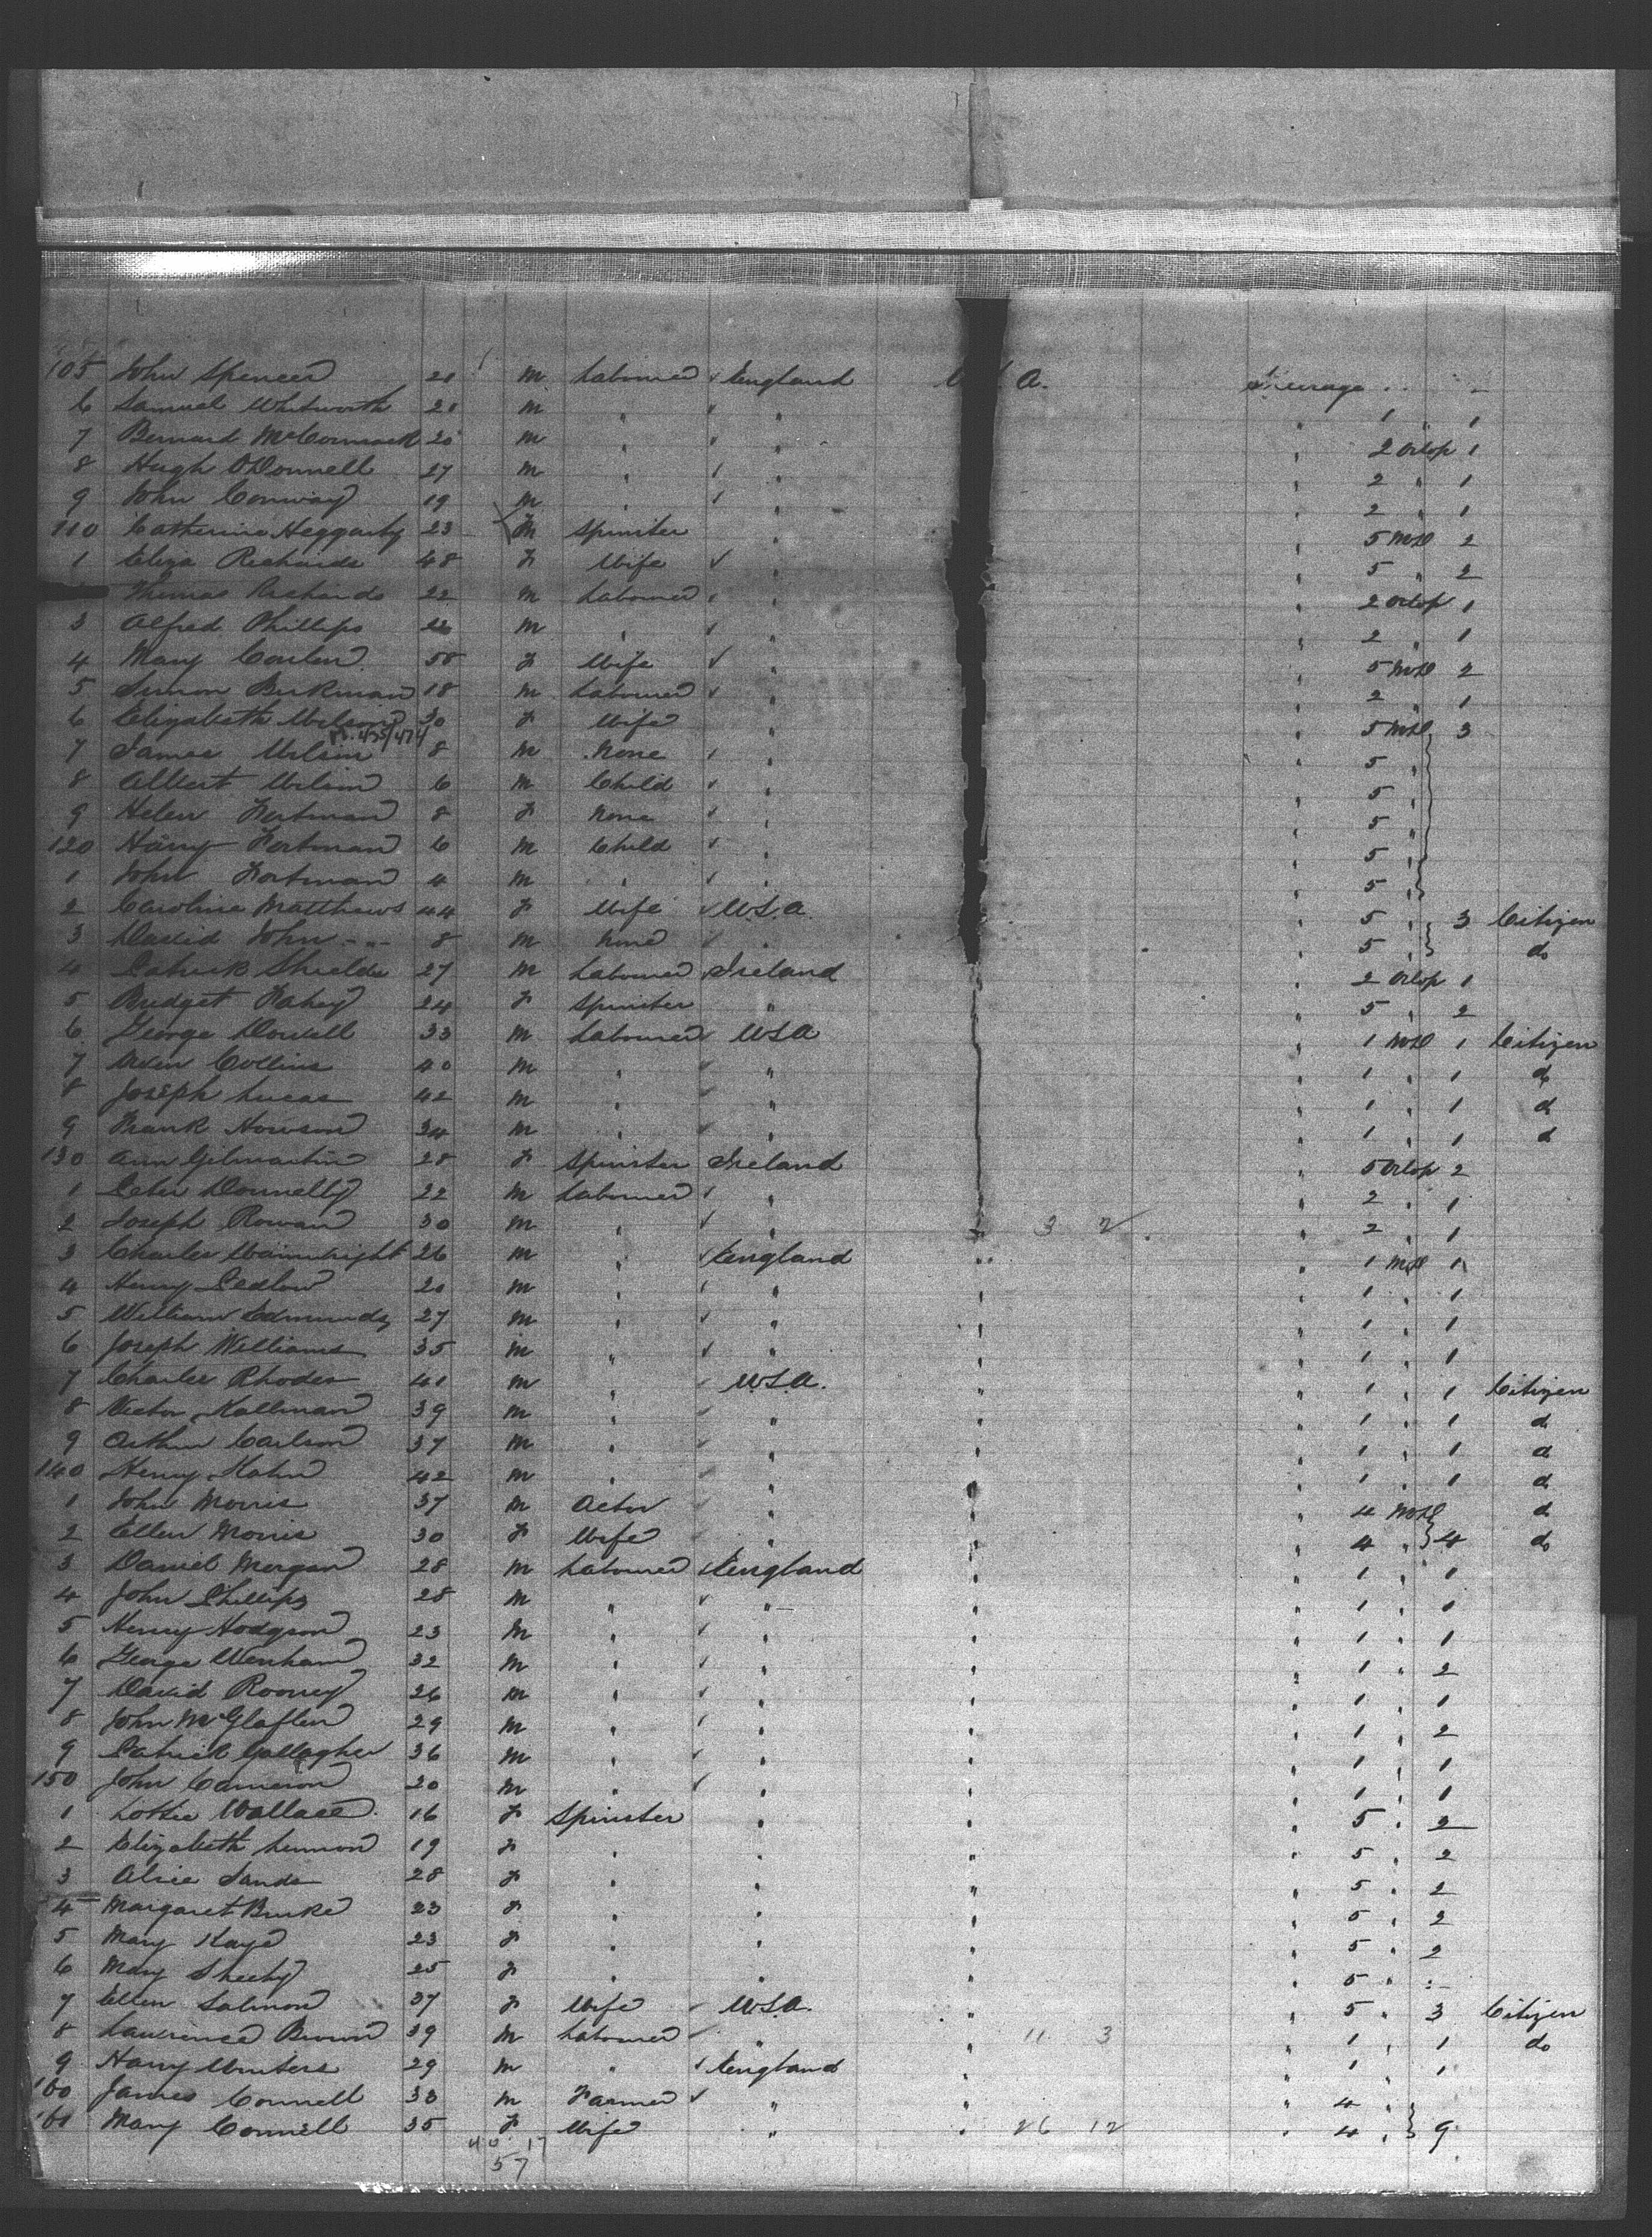 105 John Spencer 20 m Labourer England U.S.A. Steerage
6 Samuel Whitworth 20 m " " " 1 1
7 Bernard McCormack 20 m " " " 2 Orlop 1
8 Hugh O'Donnell 27 m " " " 2 " 1
9 John Conway 19 m " " " 2 " 1
110 Catherine Heggarty 23 m Spinster " " 5 Mdl 2
1 Eliza Richards 48 F Wife " " 5 " 2
Thomas Richards 22 m Labourer " " 2 Orlop 1
3 Alfred Phillips m " " " 2 " 1
4 Mary 58 F Wife " " 5 Mdl 2
5 Simon 18 m Labourer " " 2 " 1
6 Elizabeth Wilson 30 F Wife " " 5 Mdl 3
7 James Wilson 8 m None " " 5 "
8 Albert Wilson 6 m Child " " 5 "
9 Helen 8 F None " " 5 "
120 Harry 6 m Child " " 5 "
1 John 4 m " " " 5 "
2 Caroline Matthews 44 F Wife U.S.A. " 5 " 3 Citizen
3 David John -"- 8 m None " " 5 " do
4 Patrick Shields 27 m Labourer Ireland " 2 Orlop 1
5 Bridget Fahey 24 F Spinster " " 5 " 2
6 George 33 m Labourer USA " 1 Mdl 1 Citizen
7 Collins 40 m " " " 1 " 1 do
8 Joseph Lucas 42 m " " " 1 " 1 do
9 Frank Howson 34 m " " " 1 " 1 do
130 Ann Gilmartin 28 F Spinster Ireland " 5 Orlop 2
1 Peter Donnelly 22 m Labourer " " 2 " 1
2 Joseph Rowan 30 m " " " 3 2 " 2 " 1
3 Charles Wainwright 26 m " England " 1 Mdl 1
4 Henry Pedlow 20 m " " " 1 " 1
5 William Edmunds 27 m " " " 1 " 1
6 Joseph Williams 35 m " " " 1 " 1
7 Charles Rhodes 41 m " U.S.A. " 1 " 1 Citizen
8 Victor Kallman 39 m " " " 1 " 1 do
9 Arthur Carlson 37 m " " " 1 " 1 do
140 Henry Hahn 42 m " " " 1 " 1 do
1 John Morris 37 m Actor " " 4 Mdl do
2 Ellen Morris 30 F Wife " " 4 " 4 do
3 Daniel Morgan 28 m Labourer England " 1 " 1
4 John Phillips 28 m " " " 1 " 1
5 Henry Hodgson 23 m " " " 1 " 1
6 George Wenham 32 m " " " 1 " 2
7 David Rooney 26 m " " " 1 " 1
8 John McGlaflen 29 m " " " 1 " 2
9 Patrick Gallagher 36 m " " " 1 " 1
150 John Cameron 20 m " " " 1 " 1
1 Lottie Wallace 16 F Spinster " " 5 " 2
2 Elizabeth Lennon 19 F " " " 5 " 2
3 Alice Sands 28 F " " " 5 " 2
4 Margaret Burke 23 F " " " 5 " 2
5 Mary Kaye 23 F " " " 5 " 2
6 Mary Sheehy 25 F " " " 5 "
7 Ellen Salmon 37 F Wife U.S.A. " 5 " 3 Citizen
8 Lawrence Brown 39 m Labourer " " 11 3 " 1 " 1 do
9 Harry Winters 29 m " England " 1 " 1
160 James Connell 33 m Farmer " " 4 "
161 Mary Connell 35 F Wife " " 26 12 " 4 " 9
40 17
57